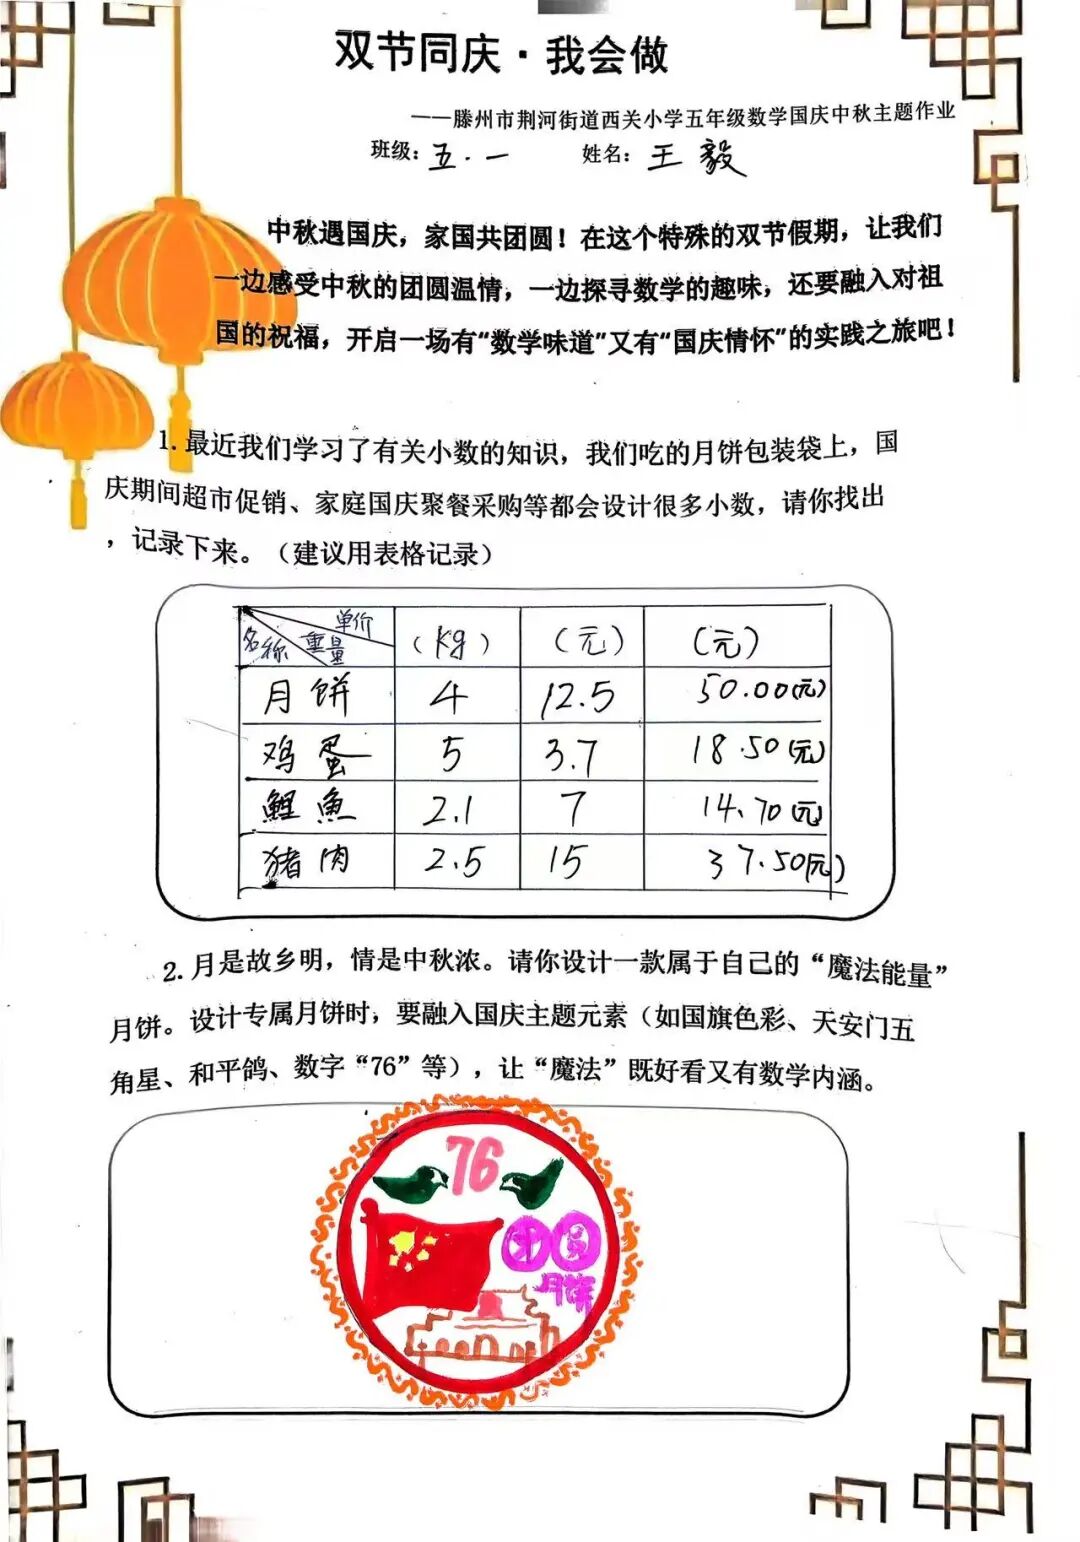 双节同庆·我会做
——滕州市荆河街道西关小学五年级数学国庆中秋主题作业
班级：五.一 姓名：王毅
中秋遇国庆，家国共团圆！在这个特殊的双节假期，让我们
一边感受中秋的团圆温情，一边探寻数学的趣味，还要融入对祖
国的祝福，开启一场有“数学味道”又有“国庆情怀”的实践之旅吧！
1.最近我们学习了有关小数的知识，我们吃的月饼包装袋上，国
庆期间超市促销、家庭国庆聚餐采购等都会设计很多小数，请你找出
，记录下来。（建议用表格记录）
名称 重量 单价 （kg） （元） （元）
月饼 4 12.5 50.00(元)
鸡蛋 5 3.7 18.50(元)
鲤魚 2.1 7 14.70(元)
猪肉 2.5 15 37.50(元)
2.月是故乡明，情是中秋浓。请你设计一款属于自己的“魔法能量”
月饼。设计专属月饼时，要融入国庆主题元素（如国旗色彩、天安门五
角星、和平鸽、数字“76”等），让“魔法”既好看又有数学内涵。
76
团员
月饼